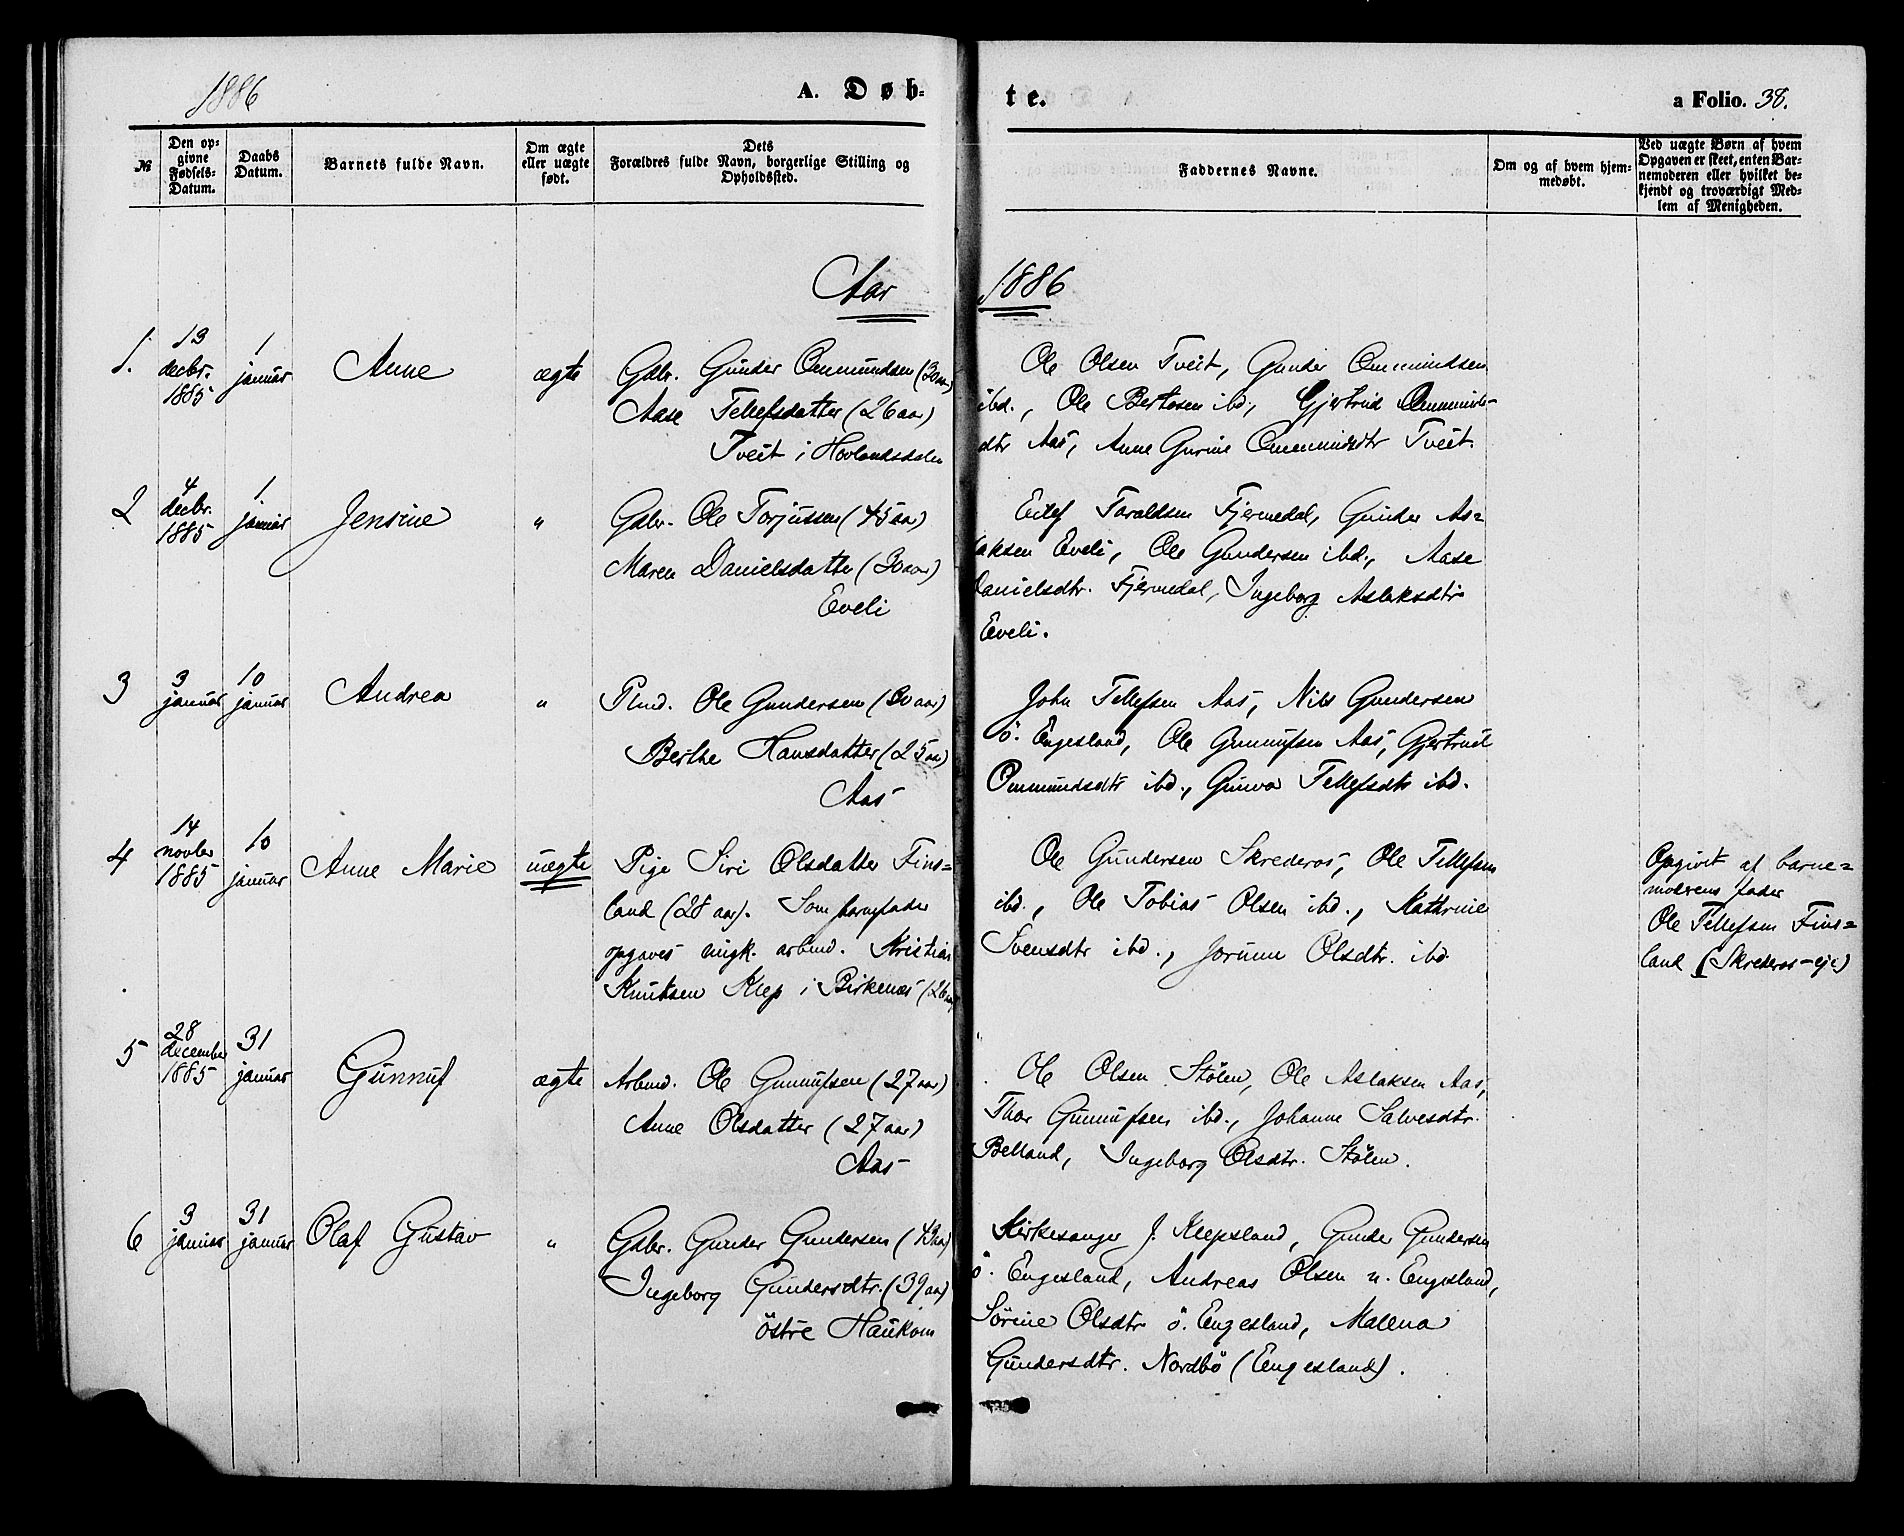 1886
A. Døb-
te.
a Folio. 38.
№
Den op-
givne
Fødsels-
Datum.
Daabs
Datum.
Barnets fulde Navn.
Om ægte
eller uægte
født.
Dets
Forældres fulde Navn, borgerlige Stilling og
Opholdssted.
Faddernes Navne.
Om og af hvem hjem-
medøbt.
Ved uægte Børn af hvem
Opgaven er skeet, enten Bar-
nemoderen eller hvilket be-
kjendt og troværdigt Med-
lem af Menigheden.
Aar 1886
1.
13
decbr.
1885
1
januar
Anne
ægte
Gbr. Gunder Ommundsen (30 aar)
Aase Tellefsdatter (26 aar)
Tveit i Hovlandsdalen
Ole Olsen Tveit, Gunder Ommundsen
ibd., Ole Bertesen ibd., Gjertrud Ommunds-
dtr Aas, Anne Gurine Ommundsdtr Tveit.
2
4
decbr.
1885
1
januar
Jensine
"
Gbr. Ole Torjussen (45 aar)
Maren Danielsdatter (30 aar)
Eveli
Eilef Taraldsen Fjermedal, Gunder As=
laksen Eveli, Ole Gundersen ibd., Aase
Danielsdtr. Fjermedal, Ingeborg Aslaksdtr
Eveli.
3
3
januar
10
januar
Andrea
"
Plmd. Ole Gundersen (30 aar)
Berthe Hansdatter (25 aar)
Aas
John Tellefsen Aas, Nils Gundersen
ö. Engesland, Ole Gunnufsen Aas, Gjertrud
Ommundsdtr ibd., Gunvor Tellefsdtr ibd.
4
14
novber
1885
10
januar
Anne Marie
uægte
Pige Siri Olsdatter Fins=
land (28 aar). Som barnefader
opgaves ungk. arbmd. Kristian
Knutsen Klep i Birkenæs (26 aar)
Ole Gundersen Skrederos, Ole Tellefsen
ibd., Ole Tobias Olsen ibd., Kathrine
Svensdtr ibd., Jorunn Olsdtr. ibd.
Opgivet af barne=
moderens fader
Ole Tellefsen Fins=
land (Skrederos-eje)
5
28
december
1885
31
januar
Gunnuf
ægte
Arbmd. Ole Gunnufsen (27 aar)
Anne Olsdatter (27 aar)
Aas
Ole Olsen Stölen, Ole Aslaksen Aas,
Thor Gunnufsen ibd., Johanne Salvesdtr.
Belland, Ingeborg Olsdtr. Stölen.
6
3
januar
31
januar
Olaf Gustav
"
Gbr. Gunder Gundersen (43 aar)
Ingeborg Gundersdtr. (39 aar)
östre Haukom
Kirkesanger J. Klepsland, Gunder Gundersen
ö. Engesland, Andreas Olsen n. Engesland,
Sörine Olsdtr ö. Engesland, Malena
Gundersdtr. Nordbö (Engesland).